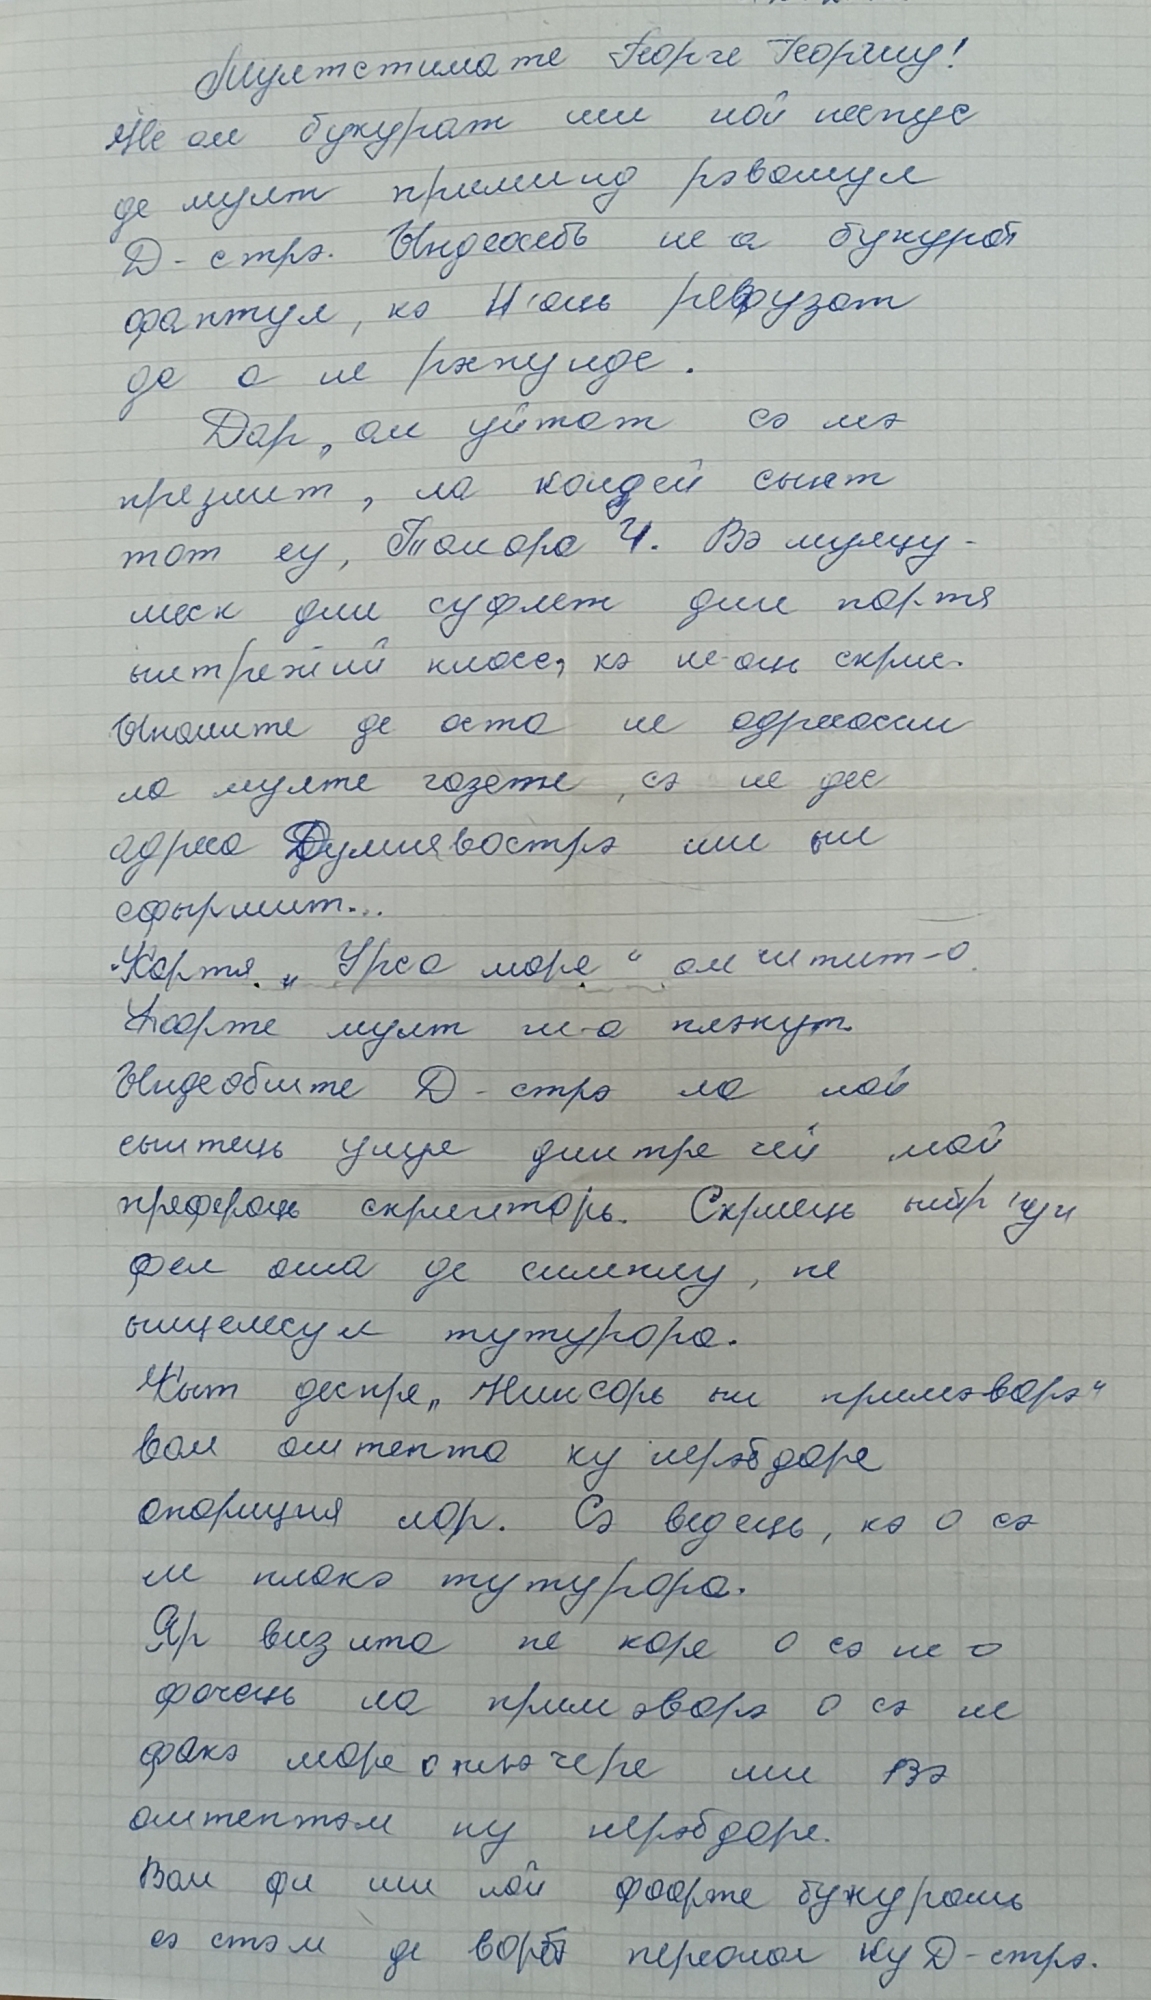 Мултстимате Георге Георгиу!
Не ам букурат ши ной неспус
де мулт приминд рэвашул
Д-стрэ. Ындеосебь не а букурат
фаптул, кэ н'аць рефузат
де а не рэспунде.
Дар, ам уйтат сэ мэ
презинт, ла кондей сынт
тот еу, Тамара Ч. Вэ мулцу-
меск дин суфлет дин партя
ынтрежий класе, кэ не-аць скрис.
Ынаинте де аста не адресасем
ла мулте газете, сэ не дее
адреса Думневоастрэ ши ын
сфыршит...
Картя „Урса маре“ ам читит-о.
Фоарте мулт ни-а плэкут.
Ындеобште Д-стрэ ла ной
сынтець унул динтре чей май
префераць скрииторь. Скриець ынтр'ун
фел аша де симплу, пе
ынцелесул тутурора.
Кыт деспре „Нинсорь ын примэварэ“
вом аштепта ку нерэбдаре
апариция лор. Сэ ведець, кэ о сэ
ле плакэ тутурора.
Яр визита пе каре о сэ не о
фачець ла примэварэ о сэ не
факэ маре плэчере ши Вэ
аштептэм ку нерэбдаре.
Вом фи ши ной фоарте букурошь
сэ стэм де ворбэ персонал ку Д-стрэ.